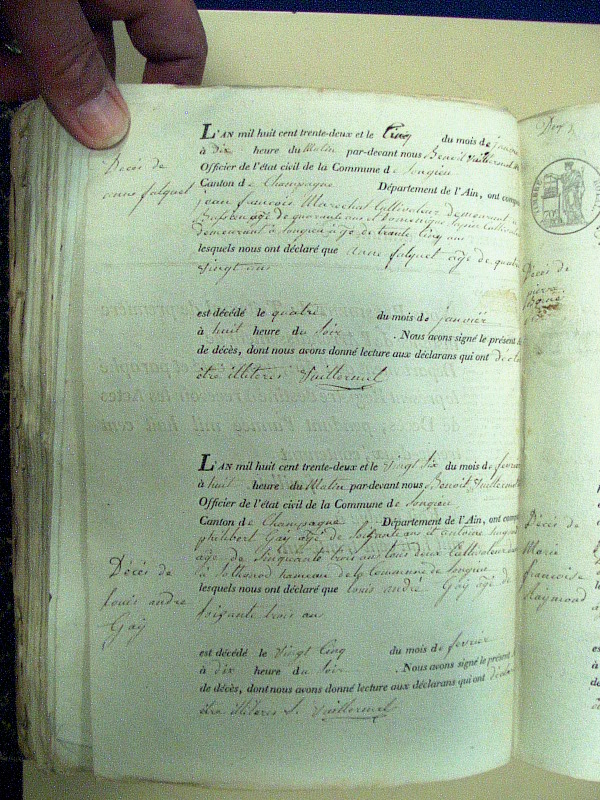 Décès de
anne falquet
L'AN mil huit cent trente-deux et le Cinq du mois de janvier
à Dix heure du Matin par-devant nous Benoit Vuillermet
Officier de l'état civil de la Commune de Songieu
Canton de Champagne Département de l'Ain, ont comp
jean francois Marechal Cultivateur demeurant à
agé de quarante ans et Dominique Cultiva
demeurant à Songieu agé de trente Cinq ans
lesquels nous ont déclaré que anne falquet agé de quatre
vingt ans
est décédé le quatre du mois de janvier
à huit heure du Soir . Nous avons signé le présent
de décès, dont nous avons donné lecture aux déclarans qui ont décla
être illiteres Vuillermet
Décès de
louis andre
Gay
L'AN mil huit cent trente-deux et le Vingt Six du mois de fevrier
à huit heure du Matin par-devant nous Benoit Vuillermet
Officier de l'état civil de la Commune de Songieu
Canton de Champagne Département de l'Ain, ont comp
philibert Gay agé de Soixante ans et antoine
agé de Cinquante trois ans tous deux Cultivateur
à Sothonod hameau de la Commune de Songieu
lesquels nous ont déclaré que louis andre Gay agé de
Soixante trois ans
est décédé le Vingt Cinq du mois de fevrier
à dix heure du Soir . Nous avons signé le présent
de décès, dont nous avons donné lecture aux déclarans qui ont décla
être illiteres Vuillermet
Décès de
pierre
Décès de
Marie
francoise
Raymond